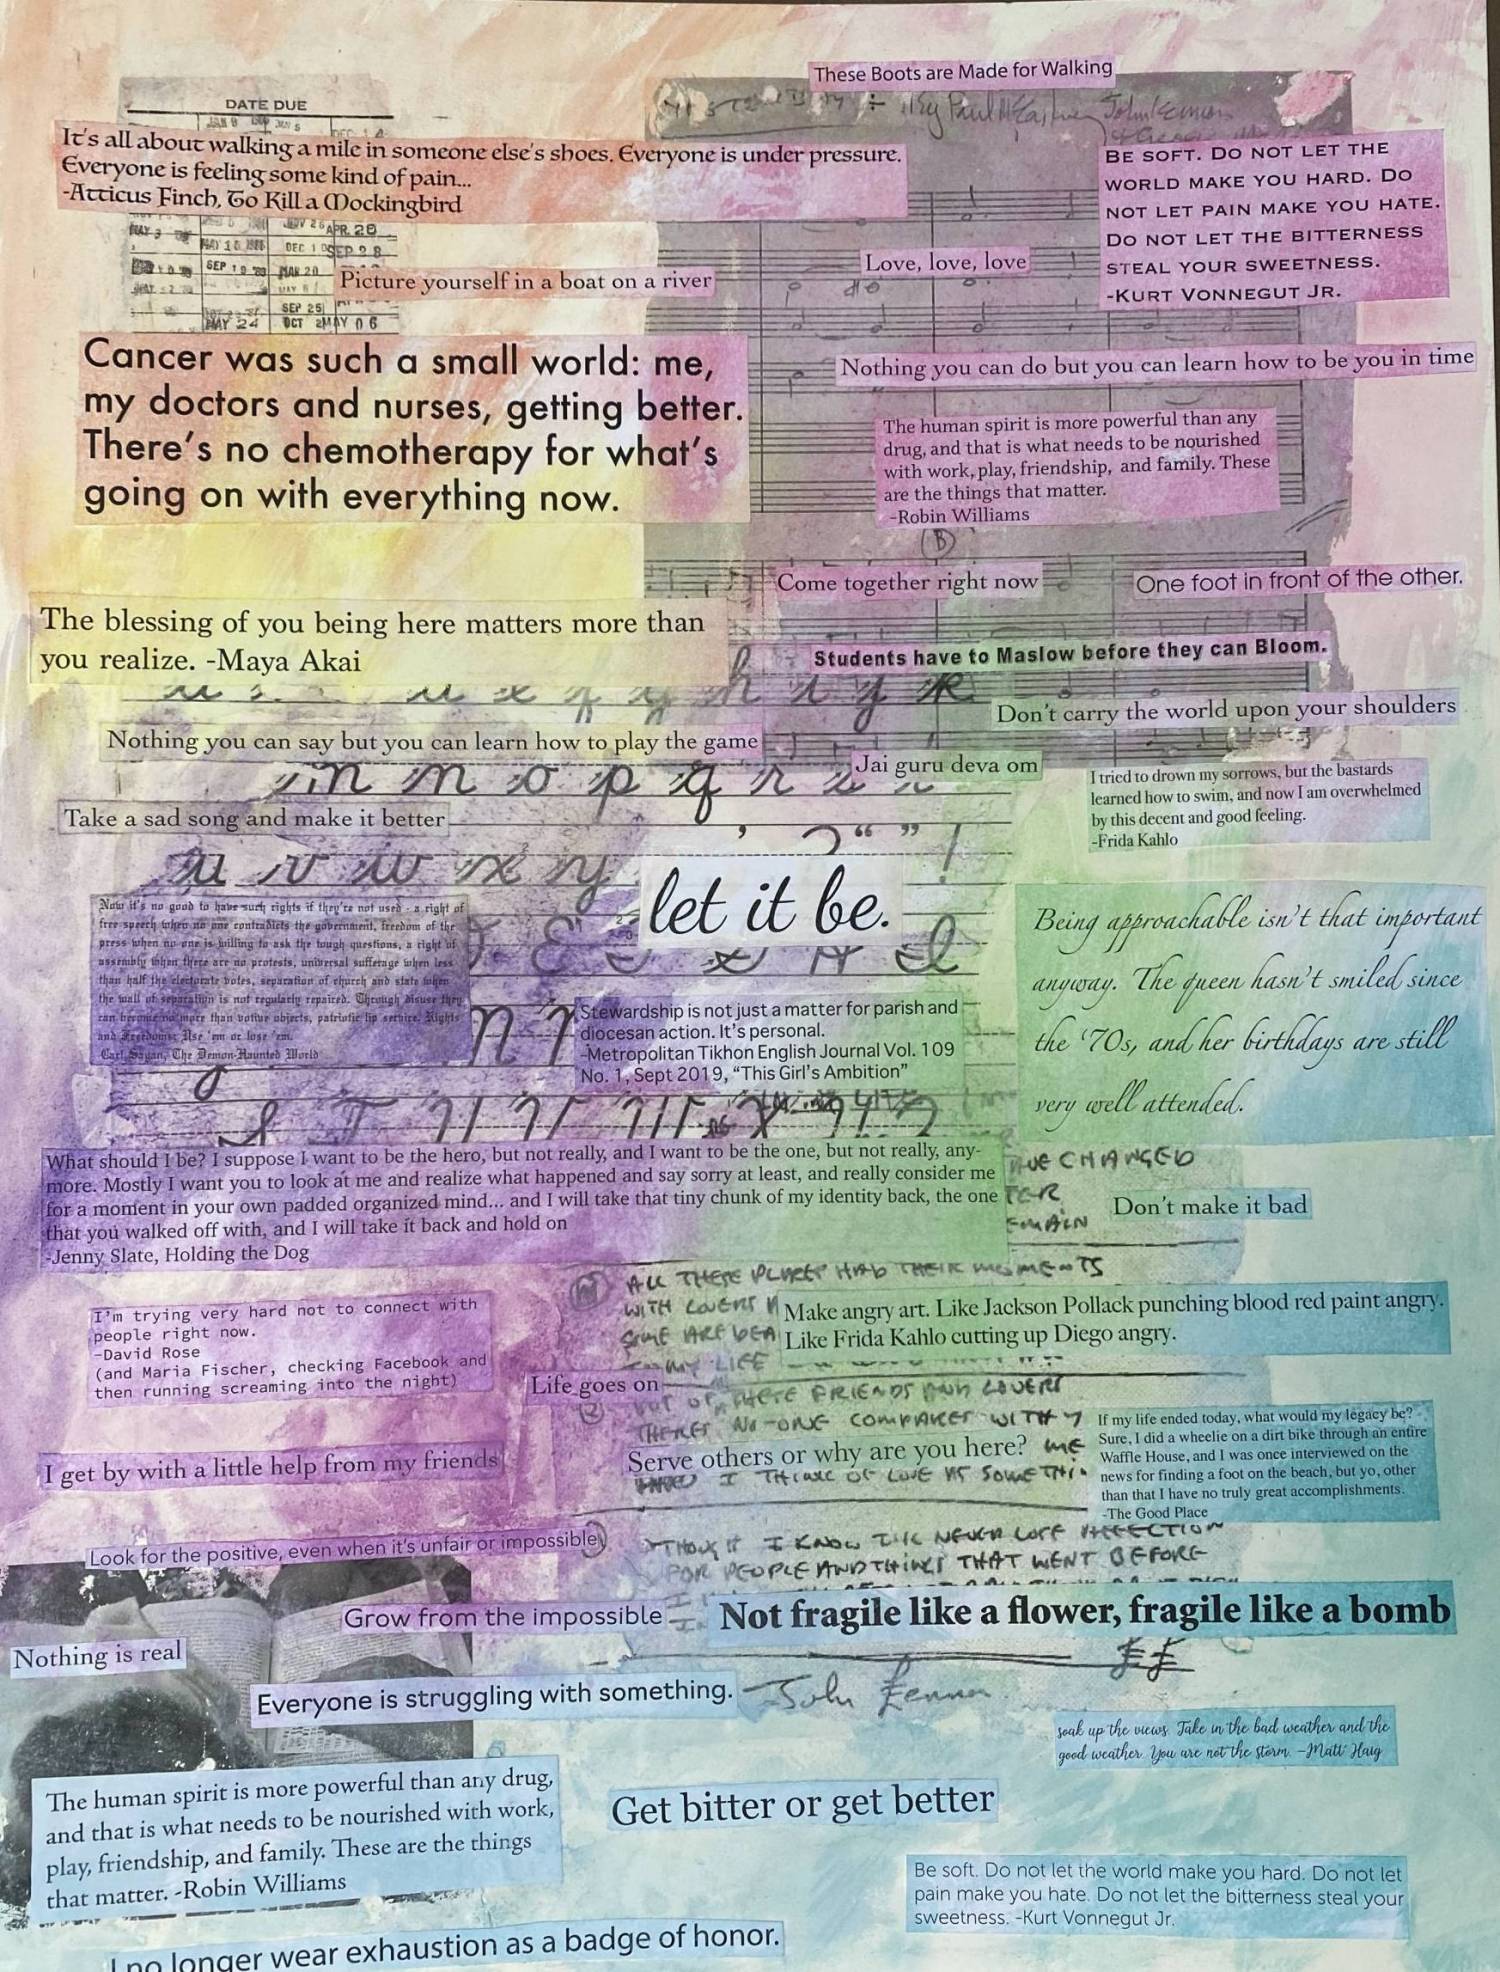 These Boots are Made for Walking
DATE DUE
It's all about walking a mile in someone else's shoes. Everyone is under pressure.
Everyone is feeling some kind of pain...
-Atticus Finch, To Kill a Mockingbird
BE SOFT. DO NOT LET THE
WORLD MAKE YOU HARD. DO
NOT LET PAIN MAKE YOU HATE.
DO NOT LET THE BITTERNESS
STEAL YOUR SWEETNESS.
-KURT VONNEGUT JR.
APR. 28
MAY 3
DEC 1 0
SEP 2 8
SEP 1 9
MAR 20
SEP 25
MAY 24
OCT 2
MAY 06
Picture yourself in a boat on a river
Love, love, love
Cancer was such a small world: me,
my doctors and nurses, getting better.
There's no chemotherapy for what's
going on with everything now.
Nothing you can do but you can learn how to be you in time
The human spirit is more powerful than any
drug, and that is what needs to be nourished
with work, play, friendship, and family. These
are the things that matter.
-Robin Williams
B
Come together right now
One foot in front of the other.
The blessing of you being here matters more than
you realize. -Maya Akai
Students have to Maslow before they can Bloom.
Don't carry the world upon your shoulders
Nothing you can say but you can learn how to play the game
Jai guru deva om
m n o p q r s
I tried to drown my sorrows, but the bastards
learned how to swim, and now I am overwhelmed
by this decent and good feeling.
-Frida Kahlo
Take a sad song and make it better
u v w x y
let it be.
Now it's no good to have such rights if they're not used - a right of
free speech when no one contradicts the government, freedom of the
press when no one is willing to ask the tough questions, a right of
assembly when there are no protests, universal sufferage when less
than half the electorate votes, separation of church and state when
the wall of separation is not regularly repaired. Through disuse they
can become no more than votive objects, patriotic lip service. Rights
and Freedoms: Use 'em or lose 'em.
-Carl Sagan, The Demon-Haunted World
Being approachable isn't that important
anyway. The queen hasn't smiled since
the '70s, and her birthdays are still
very well attended.
Stewardship is not just a matter for parish and
diocesan action. It's personal.
-Metropolitan Tikhon English Journal Vol. 109
No. 1, Sept 2019, "This Girl's Ambition"
What should I be? I suppose I want to be the hero, but not really, and I want to be the one, but not really, any-
more. Mostly I want you to look at me and realize what happened and say sorry at least, and really consider me
for a moment in your own padded organized mind... and I will take that tiny chunk of my identity back, the one
that you walked off with, and I will take it back and hold on
-Jenny Slate, Holding the Dog
CHANGED
Don't make it bad
ALL THESE PLACES HAD THEIR MOMENTS
WITH LOVERS
SOME ARE DEA
MY LIFE
I'm trying very hard not to connect with
people right now.
-David Rose
(and Maria Fischer, checking Facebook and
then running screaming into the night)
Make angry art. Like Jackson Pollack punching blood red paint angry.
Like Frida Kahlo cutting up Diego angry.
Life goes on
OF THESE FRIENDS AND LOVERS
THERES NO-ONE COMPARES WITH
If my life ended today, what would my legacy be?
Sure, I did a wheelie on a dirt bike through an entire
Waffle House, and I was once interviewed on the
news for finding a foot on the beach, but yo, other
than that I have no truly great accomplishments.
-The Good Place
Serve others or why are you here?
I THINK OF LOVE AS SOMETHI
I get by with a little help from my friends
THOUGH I KNOW I'LL NEVER LOSE AFFECTION
FOR PEOPLE AND THINGS THAT WENT BEFORE
Look for the positive, even when it's unfair or impossible
Grow from the impossible
Not fragile like a flower, fragile like a bomb
Nothing is real
Everyone is struggling with something.
John Lennon
soak up the views. Take in the bad weather and the
good weather. You are not the storm. -Matt Haig
The human spirit is more powerful than any drug,
and that is what needs to be nourished with work,
play, friendship, and family. These are the things
that matter. -Robin Williams
Get bitter or get better
Be soft. Do not let the world make you hard. Do not let
pain make you hate. Do not let the bitterness steal your
sweetness. -Kurt Vonnegut Jr.
I no longer wear exhaustion as a badge of honor.